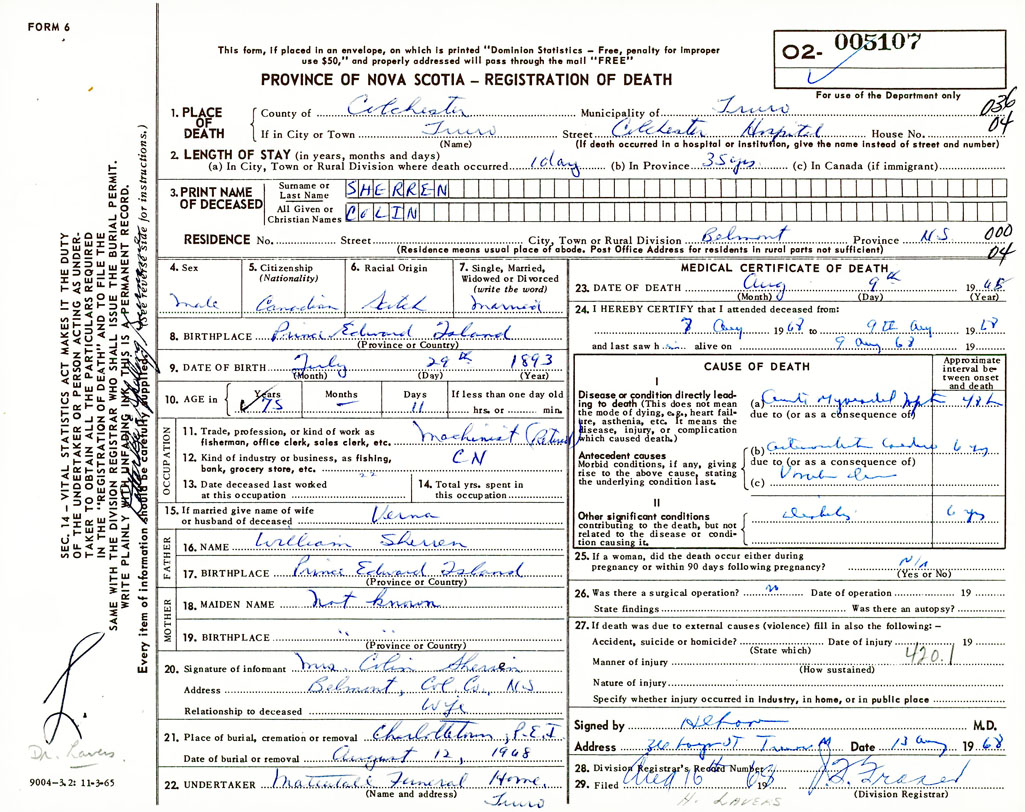 FORM 6
This form, if placed in an envelope, on which is printed "Dominion Statistics – Free, penalty for improper
use $50," and properly addressed will pass through the mail "FREE"
PROVINCE OF NOVA SCOTIA – REGISTRATION OF DEATH
O2- 005107
For use of the Department only
036
04
1. PLACE OF DEATH
County of Colchester Municipality of Truro
If in City or Town Truro Street Colchester Hospital House No.
(Name) (If death occurred in a hospital or institution, give the name instead of street and number)
2. LENGTH OF STAY (in years, months and days)
(a) In City, Town or Rural Division where death occurred 1 day (b) In Province 35 yrs (c) In Canada (if immigrant)
3. PRINT NAME OF DECEASED
Surname or Last Name SHERREN
All Given or Christian Names COLIN
RESIDENCE No. Street City, Town or Rural Division Belmont Province N.S.
(Residence means usual place of abode. Post Office Address for residents in rural parts not sufficient)
000
04
4. Sex Male
5. Citizenship (Nationality) Canadian
6. Racial Origin Scotch
7. Single, Married, Widowed or Divorced (write the word) Married
8. BIRTHPLACE Prince Edward Island
(Province or Country)
9. DATE OF BIRTH July 29th 1893
(Month) (Day) (Year)
10. AGE in Years 75 Months – Days 11 If less than one day old hrs. or min.
OCCUPATION
11. Trade, profession, or kind of work as fisherman, office clerk, sales clerk, etc. Machinist (Retired)
12. Kind of industry or business, as fishing, bank, grocery store, etc. CN
13. Date deceased last worked at this occupation
14. Total yrs. spent in this occupation
15. If married give name of wife or husband of deceased Verna
FATHER
16. NAME William Sherren
17. BIRTHPLACE Prince Edward Island
(Province or Country)
MOTHER
18. MAIDEN NAME Not known
19. BIRTHPLACE " "
(Province or Country)
20. Signature of informant Mrs. Colin Sherren
Address Belmont, Col. Co., N.S
Relationship to deceased Wife
21. Place of burial, cremation or removal Charlottetown, P.E.I
Date of burial or removal August 12, 1968
22. UNDERTAKER Funeral Home,
(Name and address) Truro
MEDICAL CERTIFICATE OF DEATH
23. DATE OF DEATH Aug 9th 19 68
(Month) (Day) (Year)
24. I HEREBY CERTIFY that I attended deceased from:
8 Aug 1968 to 9th Aug 1968
and last saw him alive on 9 Aug 68 19
CAUSE OF DEATH
Approximate interval between onset and death
I
Disease or condition directly leading to death (This does not mean the mode of dying, e.g., heart failure, asthenia, etc. It means the disease, injury, or complication which caused death.)
(a) 48 h
due to (or as a consequence of)
Antecedent causes
Morbid conditions, if any, giving rise to the above cause, stating the underlying condition last.
(b) 6 yrs
due to (or as a consequence of)
(c)
II
Other significant conditions contributing to the death, but not related to the disease or condition causing it.
Diabetes 6 yrs
25. If a woman, did the death occur either during pregnancy or within 90 days following pregnancy? N/A
(Yes or No)
26. Was there a surgical operation? no Date of operation 19
State findings Was there an autopsy?
27. If death was due to external causes (violence) fill in also the following: –
Accident, suicide or homicide? Date of injury 19
(State which)
420.1
Manner of injury
(How sustained)
Nature of injury
Specify whether injury occurred in Industry, in home, or in public place
Signed by M.D.
Address Date 13 Aug 1968
28. Division Registrar's Record Number
29. Filed Aug 16th 19
(Division Registrar)
H. LAVERS
SEC. 14 – VITAL STATISTICS ACT MAKES IT THE DUTY
OF THE UNDERTAKER OR PERSON ACTING AS UNDER-
TAKER TO OBTAIN ALL THE PARTICULARS REQUIRED
IN THE "REGISTRATION OF DEATH" AND TO FILE THE
SAME WITH THE DIVISION REGISTRAR WHO SHALL ISSUE THE BURIAL PERMIT.
WRITE PLAINLY WITH UNFADING INK, THIS IS A PERMANENT RECORD.
Every item of information should be carefully supplied (see reverse side for instructions.)
Dr. Lavers
9004-3.2: 11-3-65